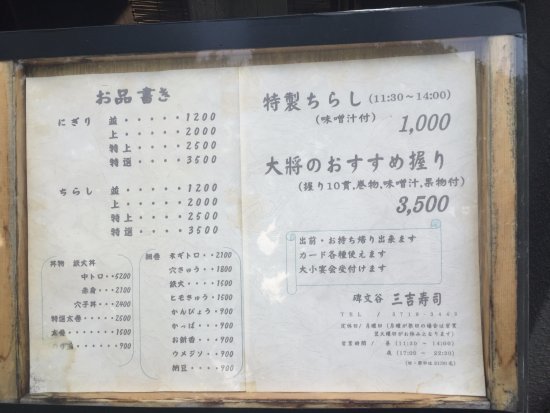 お品書き
にぎり 並・・・・・1200
上・・・・・2000
特上・・・・2500
特選・・・・3500
ちらし 並・・・・・1200
上・・・・・2000
特上・・・・2500
特選・・・・3500
丼物 鉄火丼
中トロ・・5200
赤身・・・2100
穴子丼・・・2400
特選太巻・・・2500
太巻・・・・・1500
900
細巻 ネギトロ・・2100
穴きゅう・・・1800
鉄火・・・・・1500
ヒモきゅう・・1500
かんぴょう・・・900
かっぱ・・・・900
お新香・・・・900
ウメジソ・・・900
納豆・・・・・900
特製ちらし(11:30〜14:00)
(味噌汁付) 1,000
大将のおすすめ握り
(握り10貫,巻物,味噌汁,果物付)
3,500
出前・お持ち帰り出来ます
カード各種使えます
大小宴会受付けます
碑文谷 三吉寿司
TEL / 3718-3443
定休日/月曜日(月曜が祭日の場合は営業
翌火曜日がお休みとなります)
営業時間 / 昼(11:30 ~ 14:00)
夜(17:00 ~ 22:30)